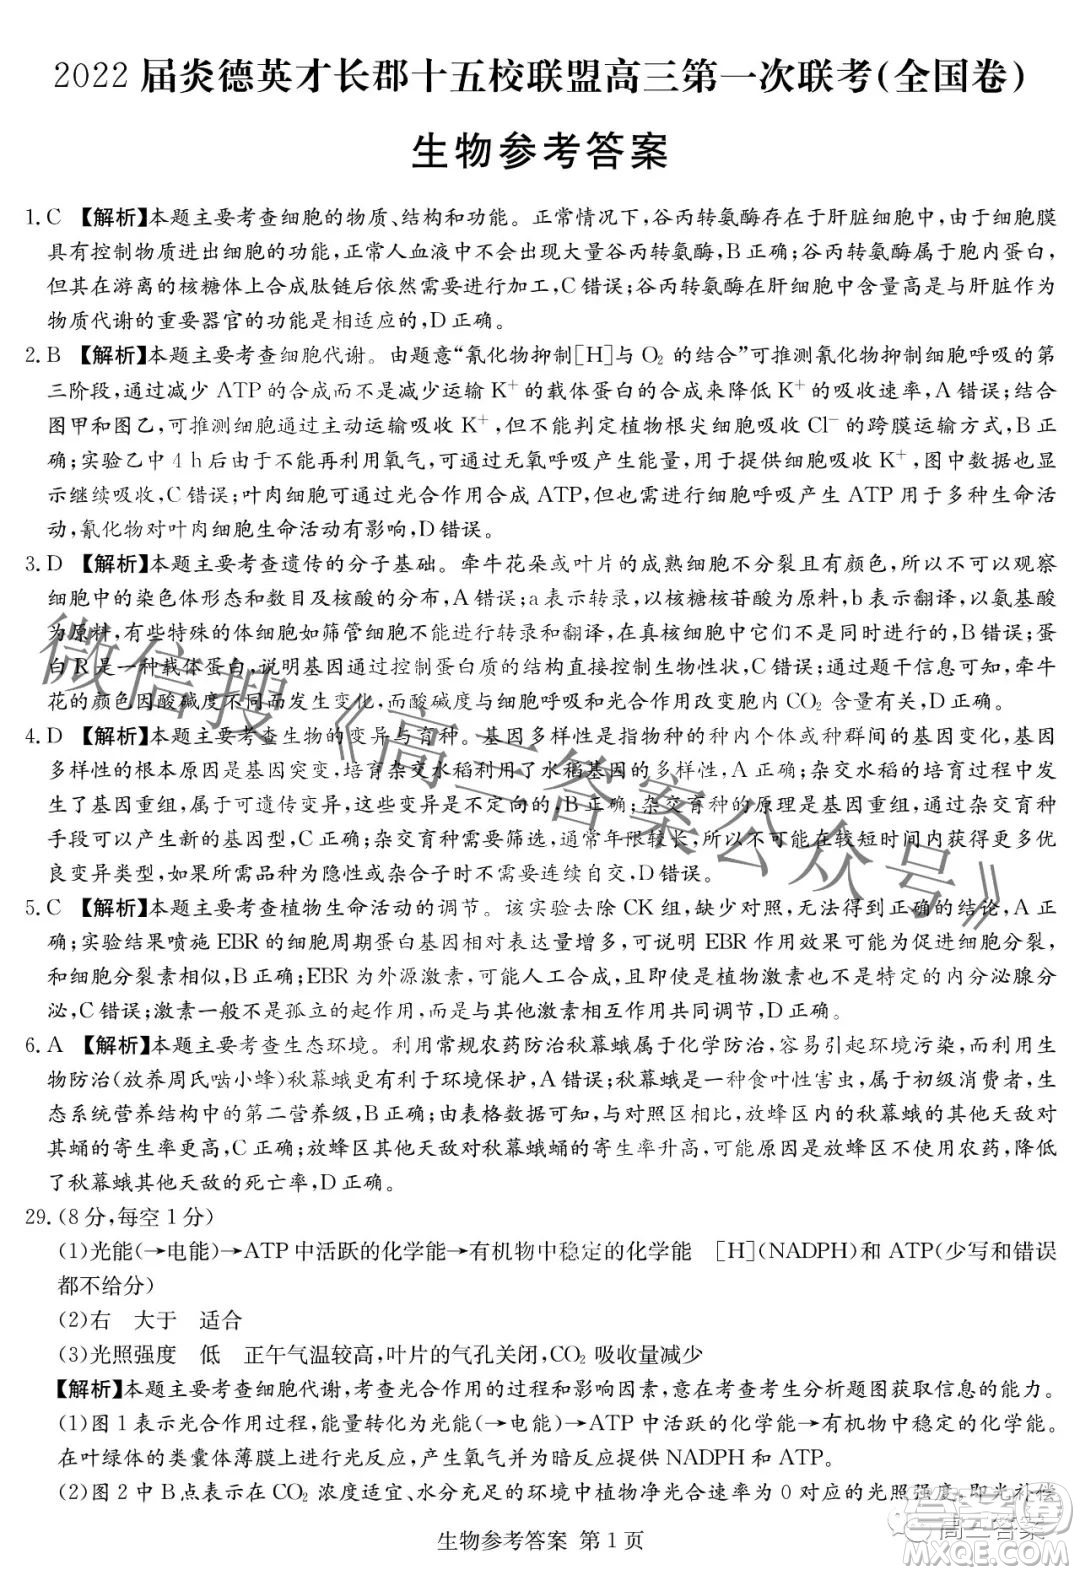 2022 届炎德英才长郡十五校联盟高三第一次联考(全国卷)
生物参考答案
1. C 【解析】本题主要考查细胞的物质、结构和功能。正常情况下,谷丙转氨酶存在于肝脏细胞中,由于细胞膜
具有控制物质进出细胞的功能,正常人血液中不会出现大量谷丙转氨酶,B 正确;谷丙转氨酶属于胞内蛋白,
但其在游离的核糖体上合成肽链后依然需要进行加工,C 错误;谷丙转氨酶在肝细胞中含量高是与肝脏作为
物质代谢的重要器官的功能是相适应的,D 正确。
2. B 【解析】本题主要考查细胞代谢。由题意“氰化物抑制[H]与 O₂ 的结合”可推测氰化物抑制细胞呼吸的第
三阶段,通过减少 ATP 的合成而不是减少运输 K⁺ 的载体蛋白的合成来降低 K⁺ 的吸收速率,A 错误;结合
图甲和图乙,可推测细胞通过主动运输吸收 K⁺,但不能判定植物根尖细胞吸收 Cl⁻ 的跨膜运输方式,B 正
确;实验乙中 4 h 后由于不能再利用氧气,可通过无氧呼吸产生能量,用于提供细胞吸收 K⁺,图中数据也显
示继续吸收,C 错误;叶肉细胞可通过光合作用合成 ATP,但也需进行细胞呼吸产生 ATP 用于多种生命活
动,氰化物对叶肉细胞生命活动有影响,D 错误。
3. D 【解析】本题主要考查遗传的分子基础。牵牛花花朵或叶片的成熟细胞不分裂且有颜色,所以不可以观察
细胞中的染色体形态和数目及核酸的分布,A 错误;a 表示转录,以核糖核苷酸为原料,b 表示翻译,以氨基酸
为原料,有些特殊的体细胞如筛管细胞不能进行转录和翻译,在真核细胞中它们不是同时进行的,B 错误;蛋
白 R 是一种载体蛋白,说明基因通过控制蛋白质的结构直接控制生物性状,C 错误;通过题干信息可知,牵牛
花的颜色因酸碱度不同而发生变化,而酸碱度与细胞呼吸和光合作用改变胞内 CO₂ 含量有关,D 正确。
4. D 【解析】本题主要考查生物的变异与育种。基因多样性是指物种的种内个体或种群间的基因变化,基因
多样性的根本原因是基因突变,培育杂交水稻利用了水稻基因的多样性,A 正确;杂交水稻的培育过程中发
生了基因重组,属于可遗传变异,这些变异是不定向的,B 正确;杂交育种的原理是基因重组,通过杂交育种
手段可以产生新的基因型,C 正确;杂交育种需要筛选,通常年限较长,所以不可能在较短时间内获得更多优
良变异类型,如果所需品种为隐性或杂合子时不需要连续自交,D 错误。
5. C 【解析】本题主要考查植物生命活动的调节。该实验去除 CK 组,缺少对照,无法得到正确的结论,A 正
确;实验结果喷施 EBR 的细胞周期蛋白基因相对表达量增多,可说明 EBR 作用效果可能为促进细胞分裂,
和细胞分裂素相似,B 正确;EBR 为外源激素,可能人工合成,且即使是植物激素也不是特定的内分泌腺分
泌,C 错误;激素一般不是孤立的起作用,而是与其他激素相互作用共同调节,D 正确。
6. A 【解析】本题主要考查生态环境。利用常规农药防治秋幕蛾属于化学防治,容易引起环境污染,而利用生
物防治(放养周氏啮小蜂)秋幕蛾更有利于环境保护,A 错误;秋幕蛾是一种食叶性害虫,属于初级消费者,生
态系统营养结构中的第二营养级,B 正确;由表格数据可知,与对照区相比,放蜂区内的秋幕蛾的其他天敌对
其蛹的寄生率更高,C 正确;放蜂区其他天敌对秋幕蛾蛹的寄生率升高,可能原因是放蜂区不使用农药,降低
了秋幕蛾其他天敌的死亡率,D 正确。
29. (8 分,每空 1 分)
(1)光能(→电能)→ATP 中活跃的化学能→有机物中稳定的化学能 [H](NADPH)和 ATP(少写和错误
都不给分)
(2)右 大于 适合
(3)光照强度 低 正午气温较高,叶片的气孔关闭,CO₂ 吸收量减少
【解析】本题主要考查细胞代谢,考查光合作用的过程和影响因素,意在考查考生分析题图获取信息的能力。
(1)图 1 表示光合作用过程,能量转化为光能(→电能)→ATP 中活跃的化学能→有机物中稳定的化学能。
在叶绿体的类囊体薄膜上进行光反应,产生氧气并为暗反应提供 NADPH 和 ATP。
(2)图 2 中 B 点表示在 CO₂ 浓度适宜、水分充足的环境中植物净光合速率为 0 对应的光照强度,即光补偿
生物参考答案 第 1 页
微信搜《高三答案公众号》
高三答案
MXQE.COM